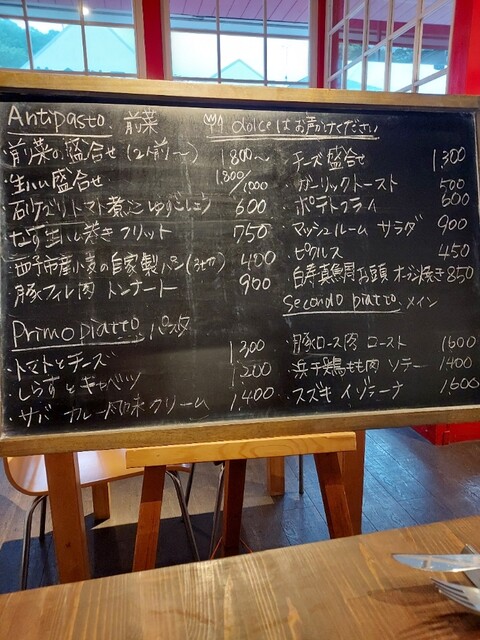 Antipasto 前菜
前菜の盛合せ (2人前〜) 1800〜
生ハム盛合せ 1,800/1,000
砂ずりトマト煮込 ゆずこしょう 600
なす生ハム巻き フリット 750
西予市産小麦の自家製パン 400
豚フィレ肉 トンナート 900
Primo piatto パスタ
・トマトとチーズ 1,300
・しらすとキャベツ 1,200
・サバ カレー風味 クリーム 1,400
dolceはお声かけください
・チーズ盛合せ 1,300
・ガーリックトースト 500
・ポテトフライ 600
・マッシュルーム サラダ 900
・ピクルス 450
お頭 オーブン焼き 850
Secondo piatto メイン
・豚ロース肉 ロースト 1600
・浜千鶏もも肉 ソテー 1400
・スズキ イゾラーナ 1,600